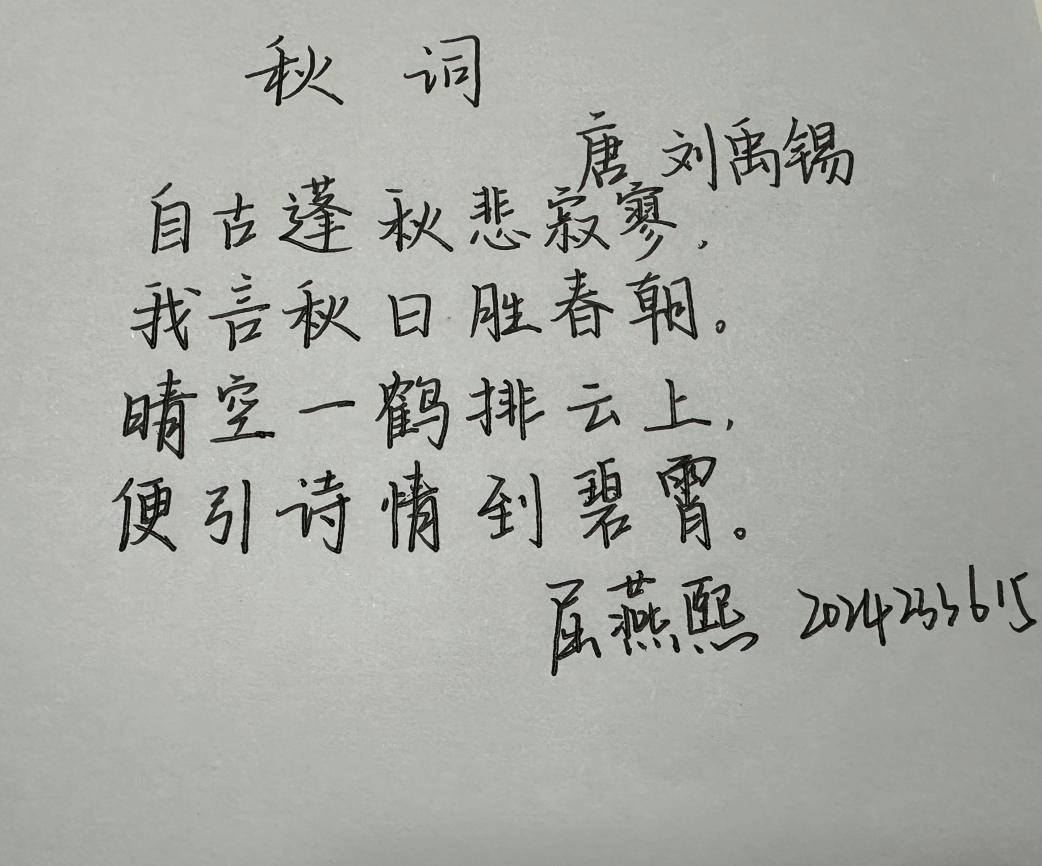 秋 词
唐 刘禹锡
自古蓬秋悲寂寥,
我言秋日胜春朝。
晴空一鹤排云上,
便引诗情到碧霄。
屈燕熙 2024233615